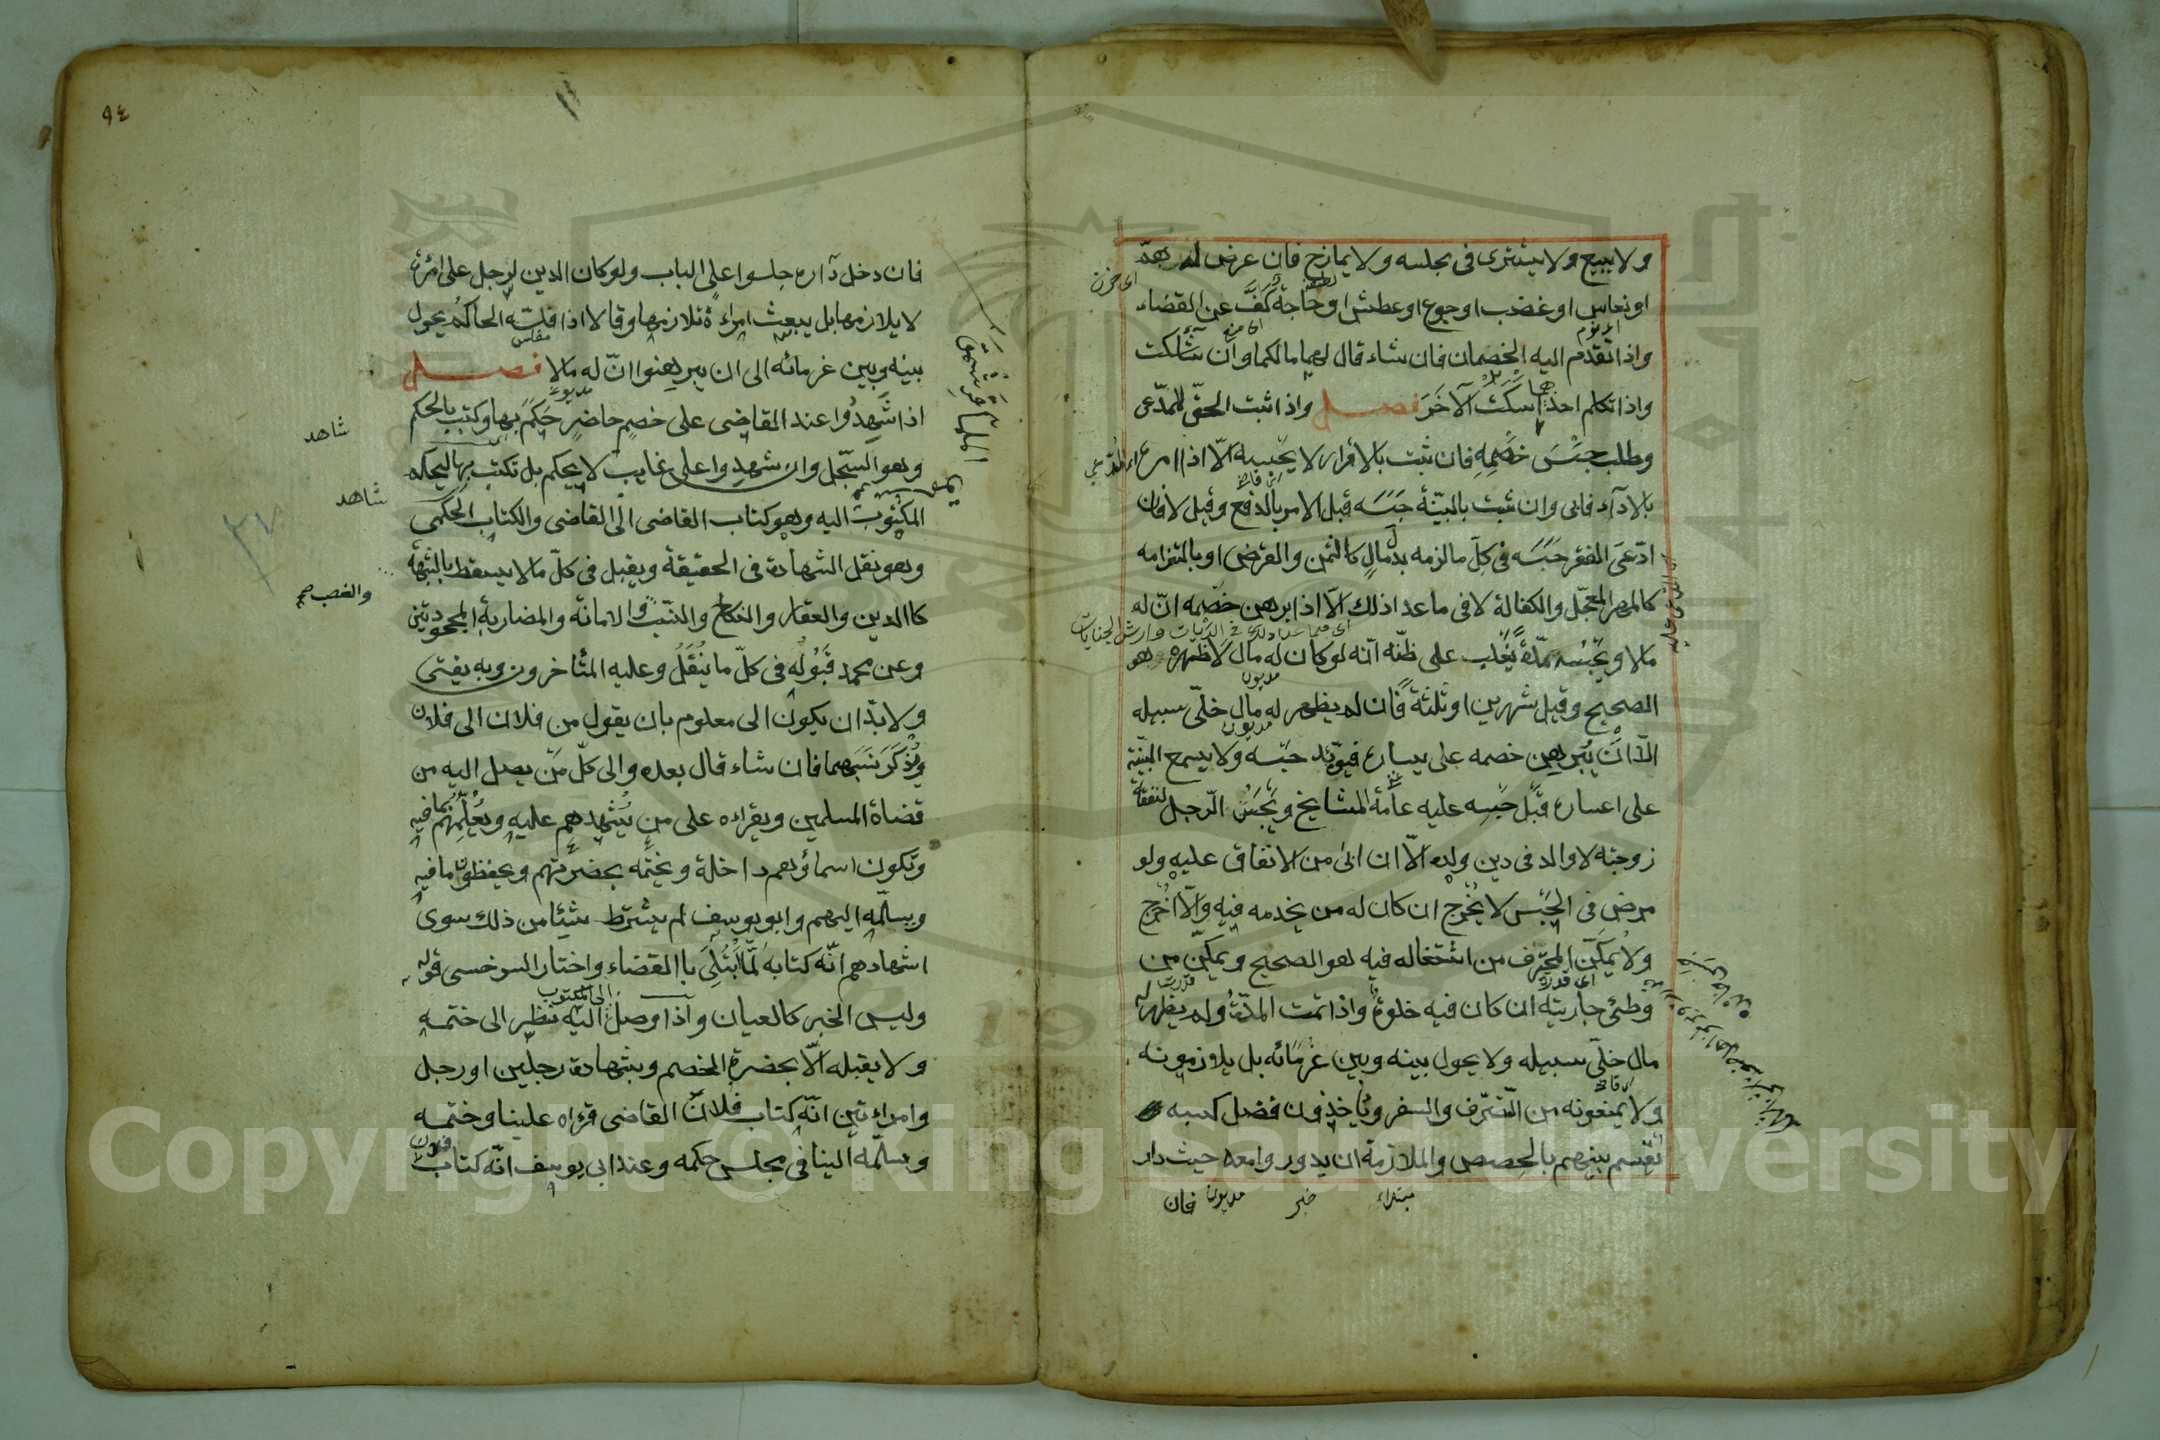 ولا يبيع ولا يشترى فى مجلسه ولا يمازح فان عرض له همّ
اى حزن
او نعاس او غضب او جوع او عطش او حاجة كفّ عن القضاء
واذا تقدم اليه الخصمان فان شاء قال لهما مالكما وان شاء سكت
واذا تكلم احدهما اسكت الآخر فصل واذا ثبت الحقّ للمدّعى
وطلب حبس خصمه فان ثبت بالاقرار لا يحبسه الّا اذا امره
بالاداء فابى وان ثبت بالبيّنة حبسه قبل الامر بالدفع وقيل لا فان
ادّعى الفقر حبسه فى كلّ ما لزمه بدل مال كالثمن والقرض او بالتزامه
كالمهر المعجّل والكفالة لا فى ما عدا ذلك الّا اذا برهن خصمه انّ له
مالا ويحبسه مدّة يغلب على ظنّه انّه لو كان له مال لاظهره هو
الصحيح وقيل شهرين او ثلثة فان لم يظهر له مال خلّى سبيله
الّا ان يبرهن خصمه على يساره فيؤبّد حبسه ولا يسمع البيّنة
على اعساره قبل حبسه عليه عامّة المشايخ ويحبس الرّجل لنفقة
زوجته لا والد فى دين ولده الّا ان ابى من الانفاق عليه ولو
مرض فى الحبس لا يخرج ان كان له من يخدمه فيه والّا اخرج
ولا يمكّن المحترف من اشتغاله فيه هو الصحيح ويمكّن من
وطئ جاريته ان كان فيه خلوة واذا تمت المدّة ولم يظهر له
مال خلّى سبيله ولا يحول بينه وبين غرمائه بل يلازمونه
ولا يمنعونه من التّصرّف والسفر ويأخذون فضل كسبه
يقسم بينهم بالحصص والملازمة ان يدوروا معه حيث دار
مبتداء خبر مديون فان
٩٤
فان دخل داره جلسوا على الباب ولو كان الدين لرجل على امرأة
لا يلازمها بل يبعث امراءة تلازمها وقالا اذا فلّسه الحاكم يحول
بينه وبين غرمائه الى ان يبرهنوا انّ له مالا فصل
اذا شهدوا عند القاضى على خصم حاضر حكم بها وكتب بالحكم
شاهد
وهو السّجل وان شهدوا على غايب لا يحكم بل تكتب بها ليحكم
شاهد
المكتوب اليه وهو كتاب القاضى الى القاضى والكتاب الحكمى
وهو نقل الشهادة فى الحقيقة ويقبل فى كلّ ما لا يسقط بالشبهة
والغصب صح
كالدين والعقار والنكاح والنّسب والامانة والمضاربة المجحودتين
وعن محمد قبوله فى كلّ ما ينقل وعليه المتأخرون وبه يفتى
ولا بدّ ان يكون الى معلوم بان يقول من فلان الى فلان
ويذكر نسبهما فان شاء قال بعده والى كلّ من يصل اليه من
قضاة المسلمين ويقراءه على من يشهدهم عليه ويعلّمهم بما فيه
وتكون اسماؤهم داخله ويختمه بحضرتهم ويحفظون ما فيه
ويسلّمه اليهم وابو يوسف لم يشترط شيئا من ذلك سوى
اشهادهم انّه كتابه لمّا ابتلى بالقضاء واختار السرخسى قوله
وليس الخبر كالعيان واذا وصل اليه نظر الى ختمه
ولا يقبله الّا بحضرة الخصم وبشهادة رجلين او رجل
وامراءتين انّه كتاب فلان القاضى قرءاه علينا وختمه
وسلّمه الينا فى مجلس حكمه وعند ابى يوسف انّه كتاب فلان
Copyright © King Saud University